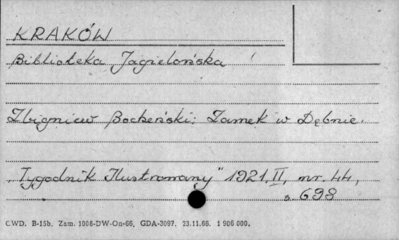 KRAKÓW
Biblioteka Jagielońska
Zbigniew Bocheński: Zamek w Dębnie.
„Tygodnik Ilustrowany" 1921. II, nr. 44,
s. 698
CWD. B-15b, Zam. 1008-DW-On-66, GDA-3097. 23.11.66. 1 906 000.